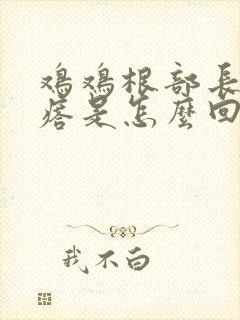 鸡鸡根部長
痞是怎麼回
我不白